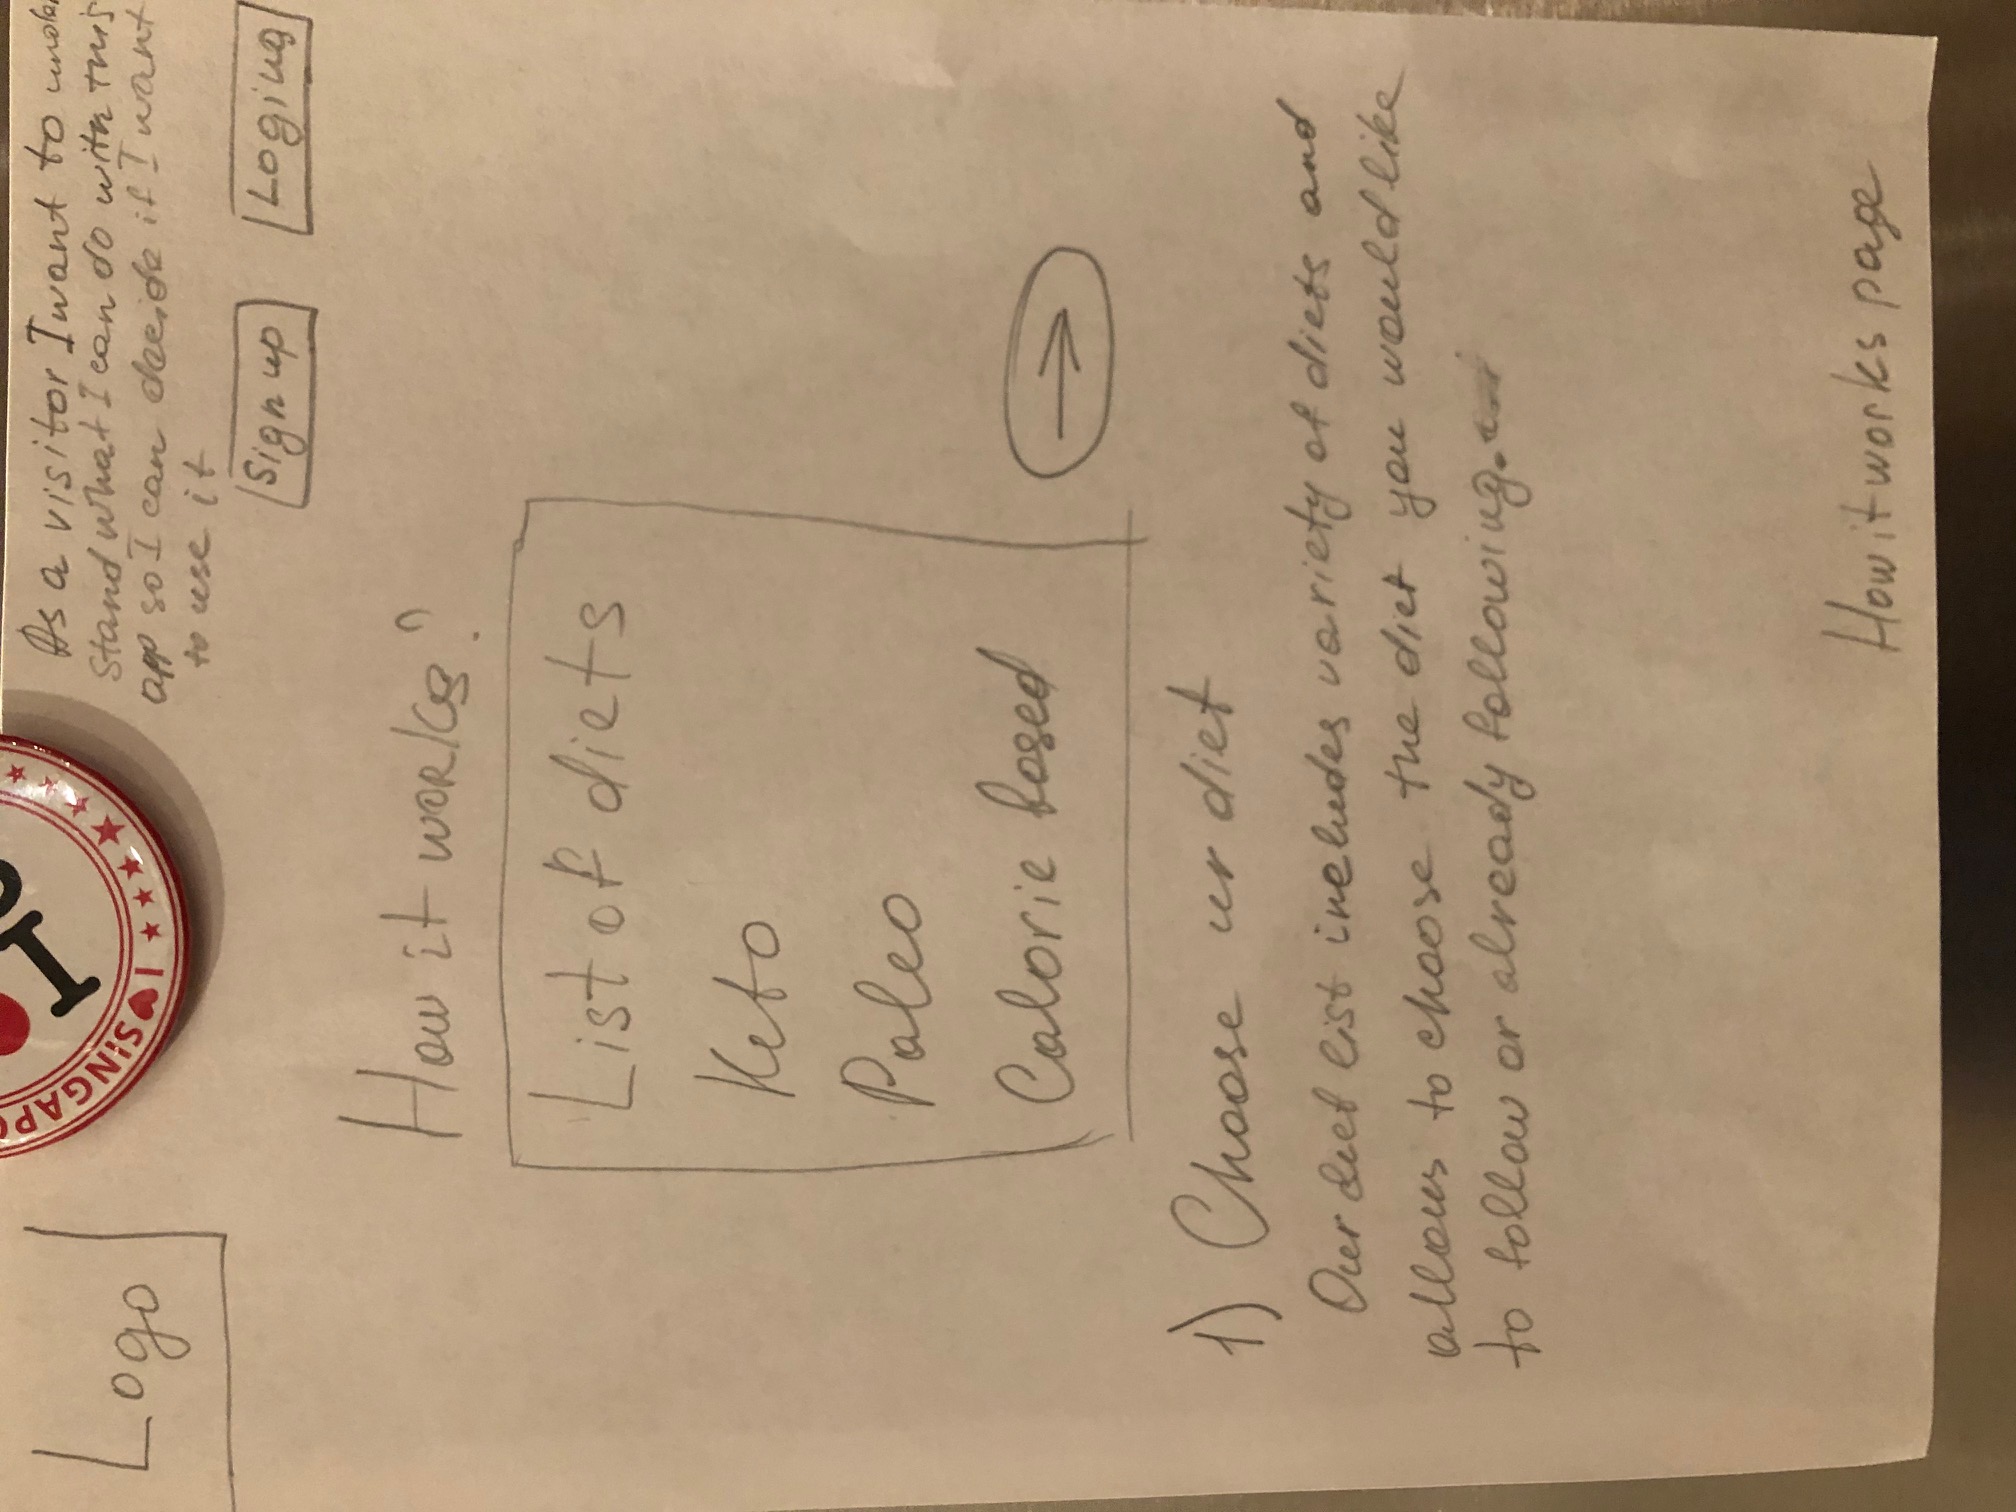 Logo
I ♥ SINGAPO
I
As a visitor I want to under
stand what I can do with this
app so I can decide if I want
to use it
Sign up
Loging
How it works?
List of diets
Keto
Paleo
Calorie based
→
1) Choose ur diet
Our diet list includes variety of diets and
allows to choose the diet you would like
to follow or already following.
How it works page